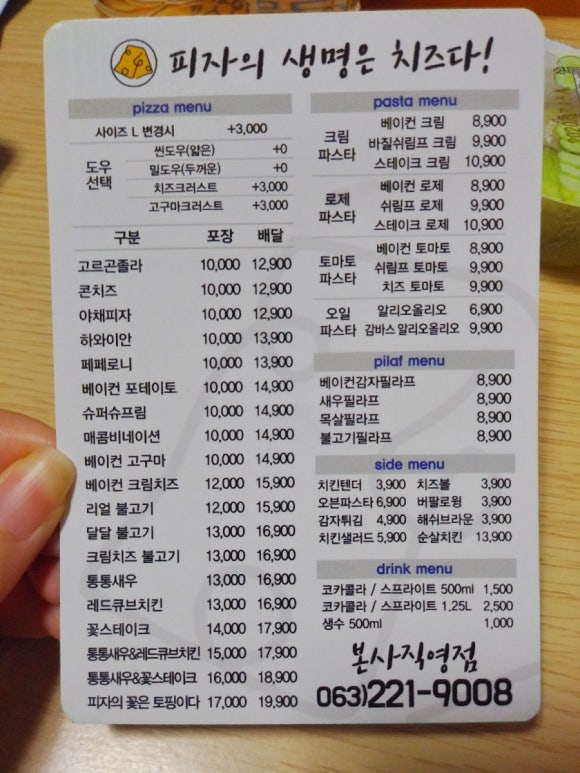 피자의 생명은 치즈다!
pizza menu
사이즈 L 변경시 +3,000
도우 선택
씬도우(얇은) +0
밀도우(두꺼운) +0
치즈크러스트 +3,000
고구마크러스트 +3,000
구분 포장 배달
고르곤졸라 10,000 12,900
콘치즈 10,000 12,900
야채피자 10,000 12,900
하와이안 10,000 13,900
페페로니 10,000 13,900
베이컨 포테이토 10,000 14,900
슈퍼슈프림 10,000 14,900
매콤비네이션 10,000 14,900
베이컨 고구마 10,000 14,900
베이컨 크림치즈 12,000 15,900
리얼 불고기 12,000 15,900
달달 불고기 13,000 16,900
크림치즈 불고기 13,000 16,900
통통새우 13,000 16,900
레드큐브치킨 13,000 16,900
꽃스테이크 14,000 17,900
통통새우&레드큐브치킨 15,000 17,900
통통새우&꽃스테이크 16,000 18,900
피자의 꽃은 토핑이다 17,000 19,900
pasta menu
크림 파스타
베이컨 크림 8,900
바질쉬림프 크림 9,900
스테이크 크림 10,900
로제 파스타
베이컨 로제 8,900
쉬림프 로제 9,900
스테이크 로제 10,900
토마토 파스타
베이컨 토마토 8,900
쉬림프 토마토 9,900
치즈 토마토 9,900
오일 파스타
알리오올리오 6,900
감바스 알리오올리오 9,900
pilaf menu
베이컨감자필라프 8,900
새우필라프 8,900
목살필라프 8,900
불고기필라프 8,900
side menu
치킨텐더 3,900 치즈볼 3,900
오븐파스타 6,900 버팔로윙 3,900
감자튀김 4,900 해쉬브라운 3,900
치킨샐러드 5,900 순살치킨 13,900
drink menu
코카콜라 / 스프라이트 500ml 1,500
코카콜라 / 스프라이트 1,25L 2,500
생수 500ml 1,000
본사직영점
063)221-9008